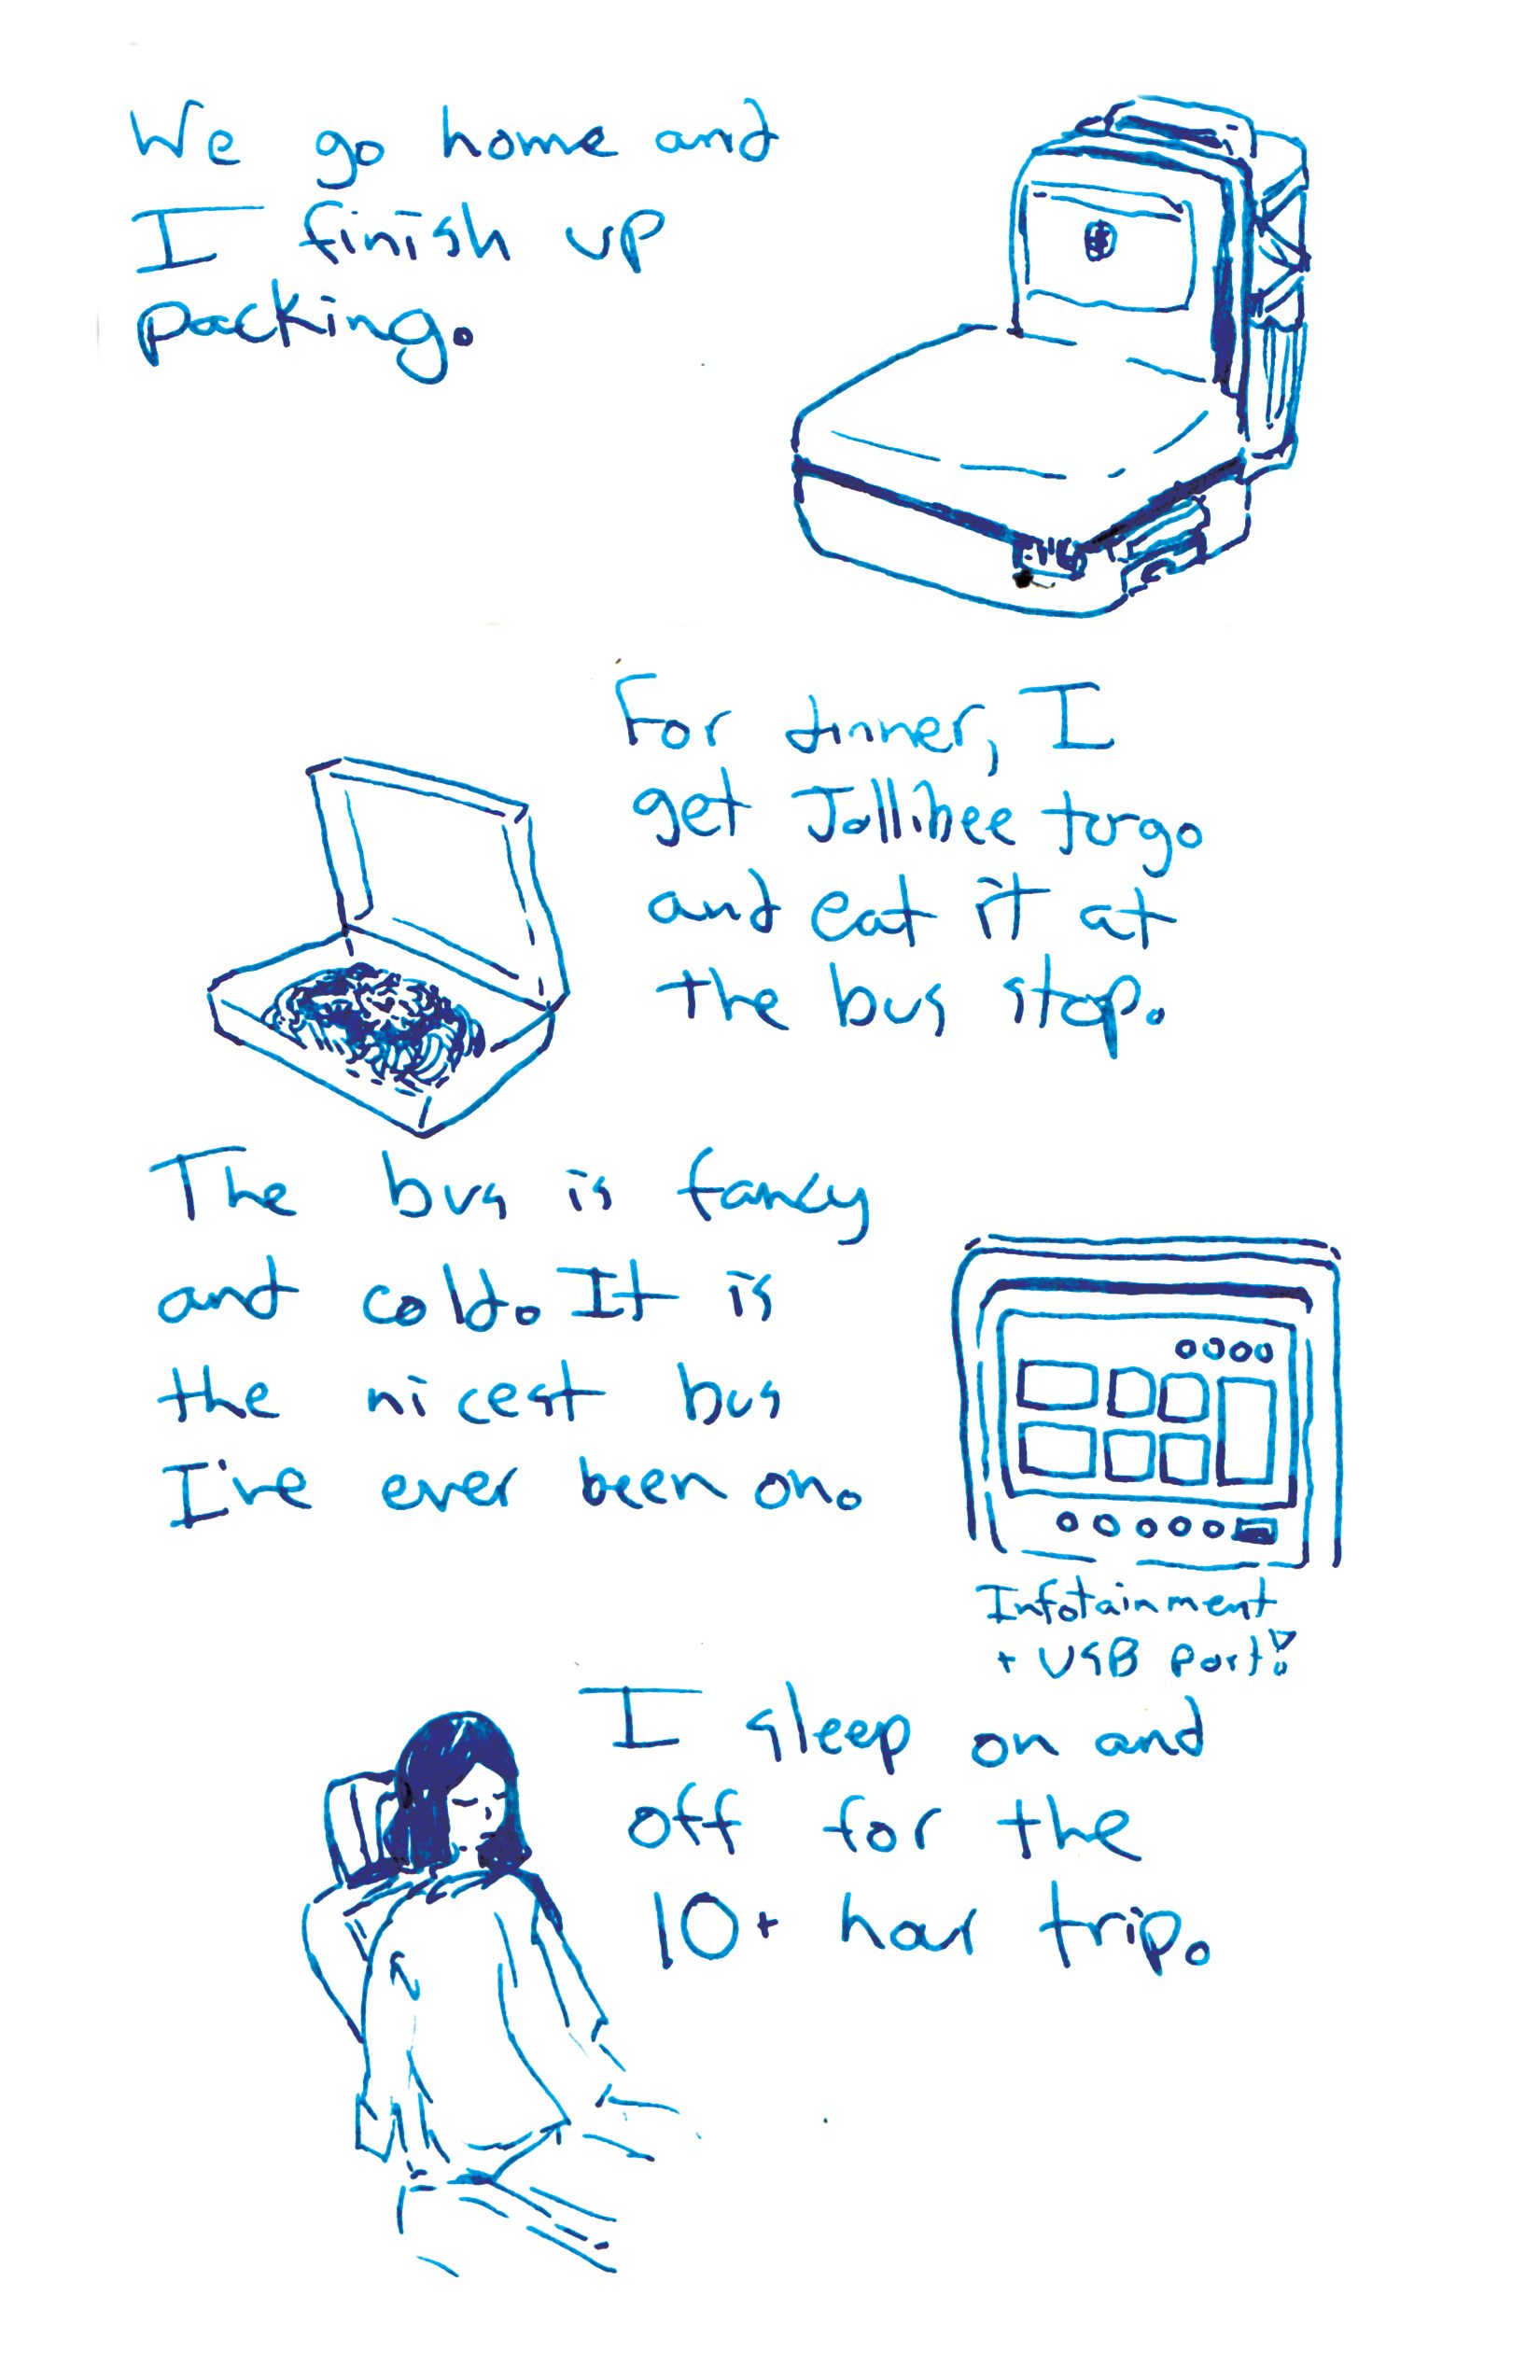 We go home and
I finish up
packing.
For dinner, I
get Jollibee to-go
and eat it at
the bus stop.
The bus is fancy
and cold. It is
the nicest bus
I've ever been on.
Infotainment
+ USB port!
I sleep on and
off for the
10+ hour trip.